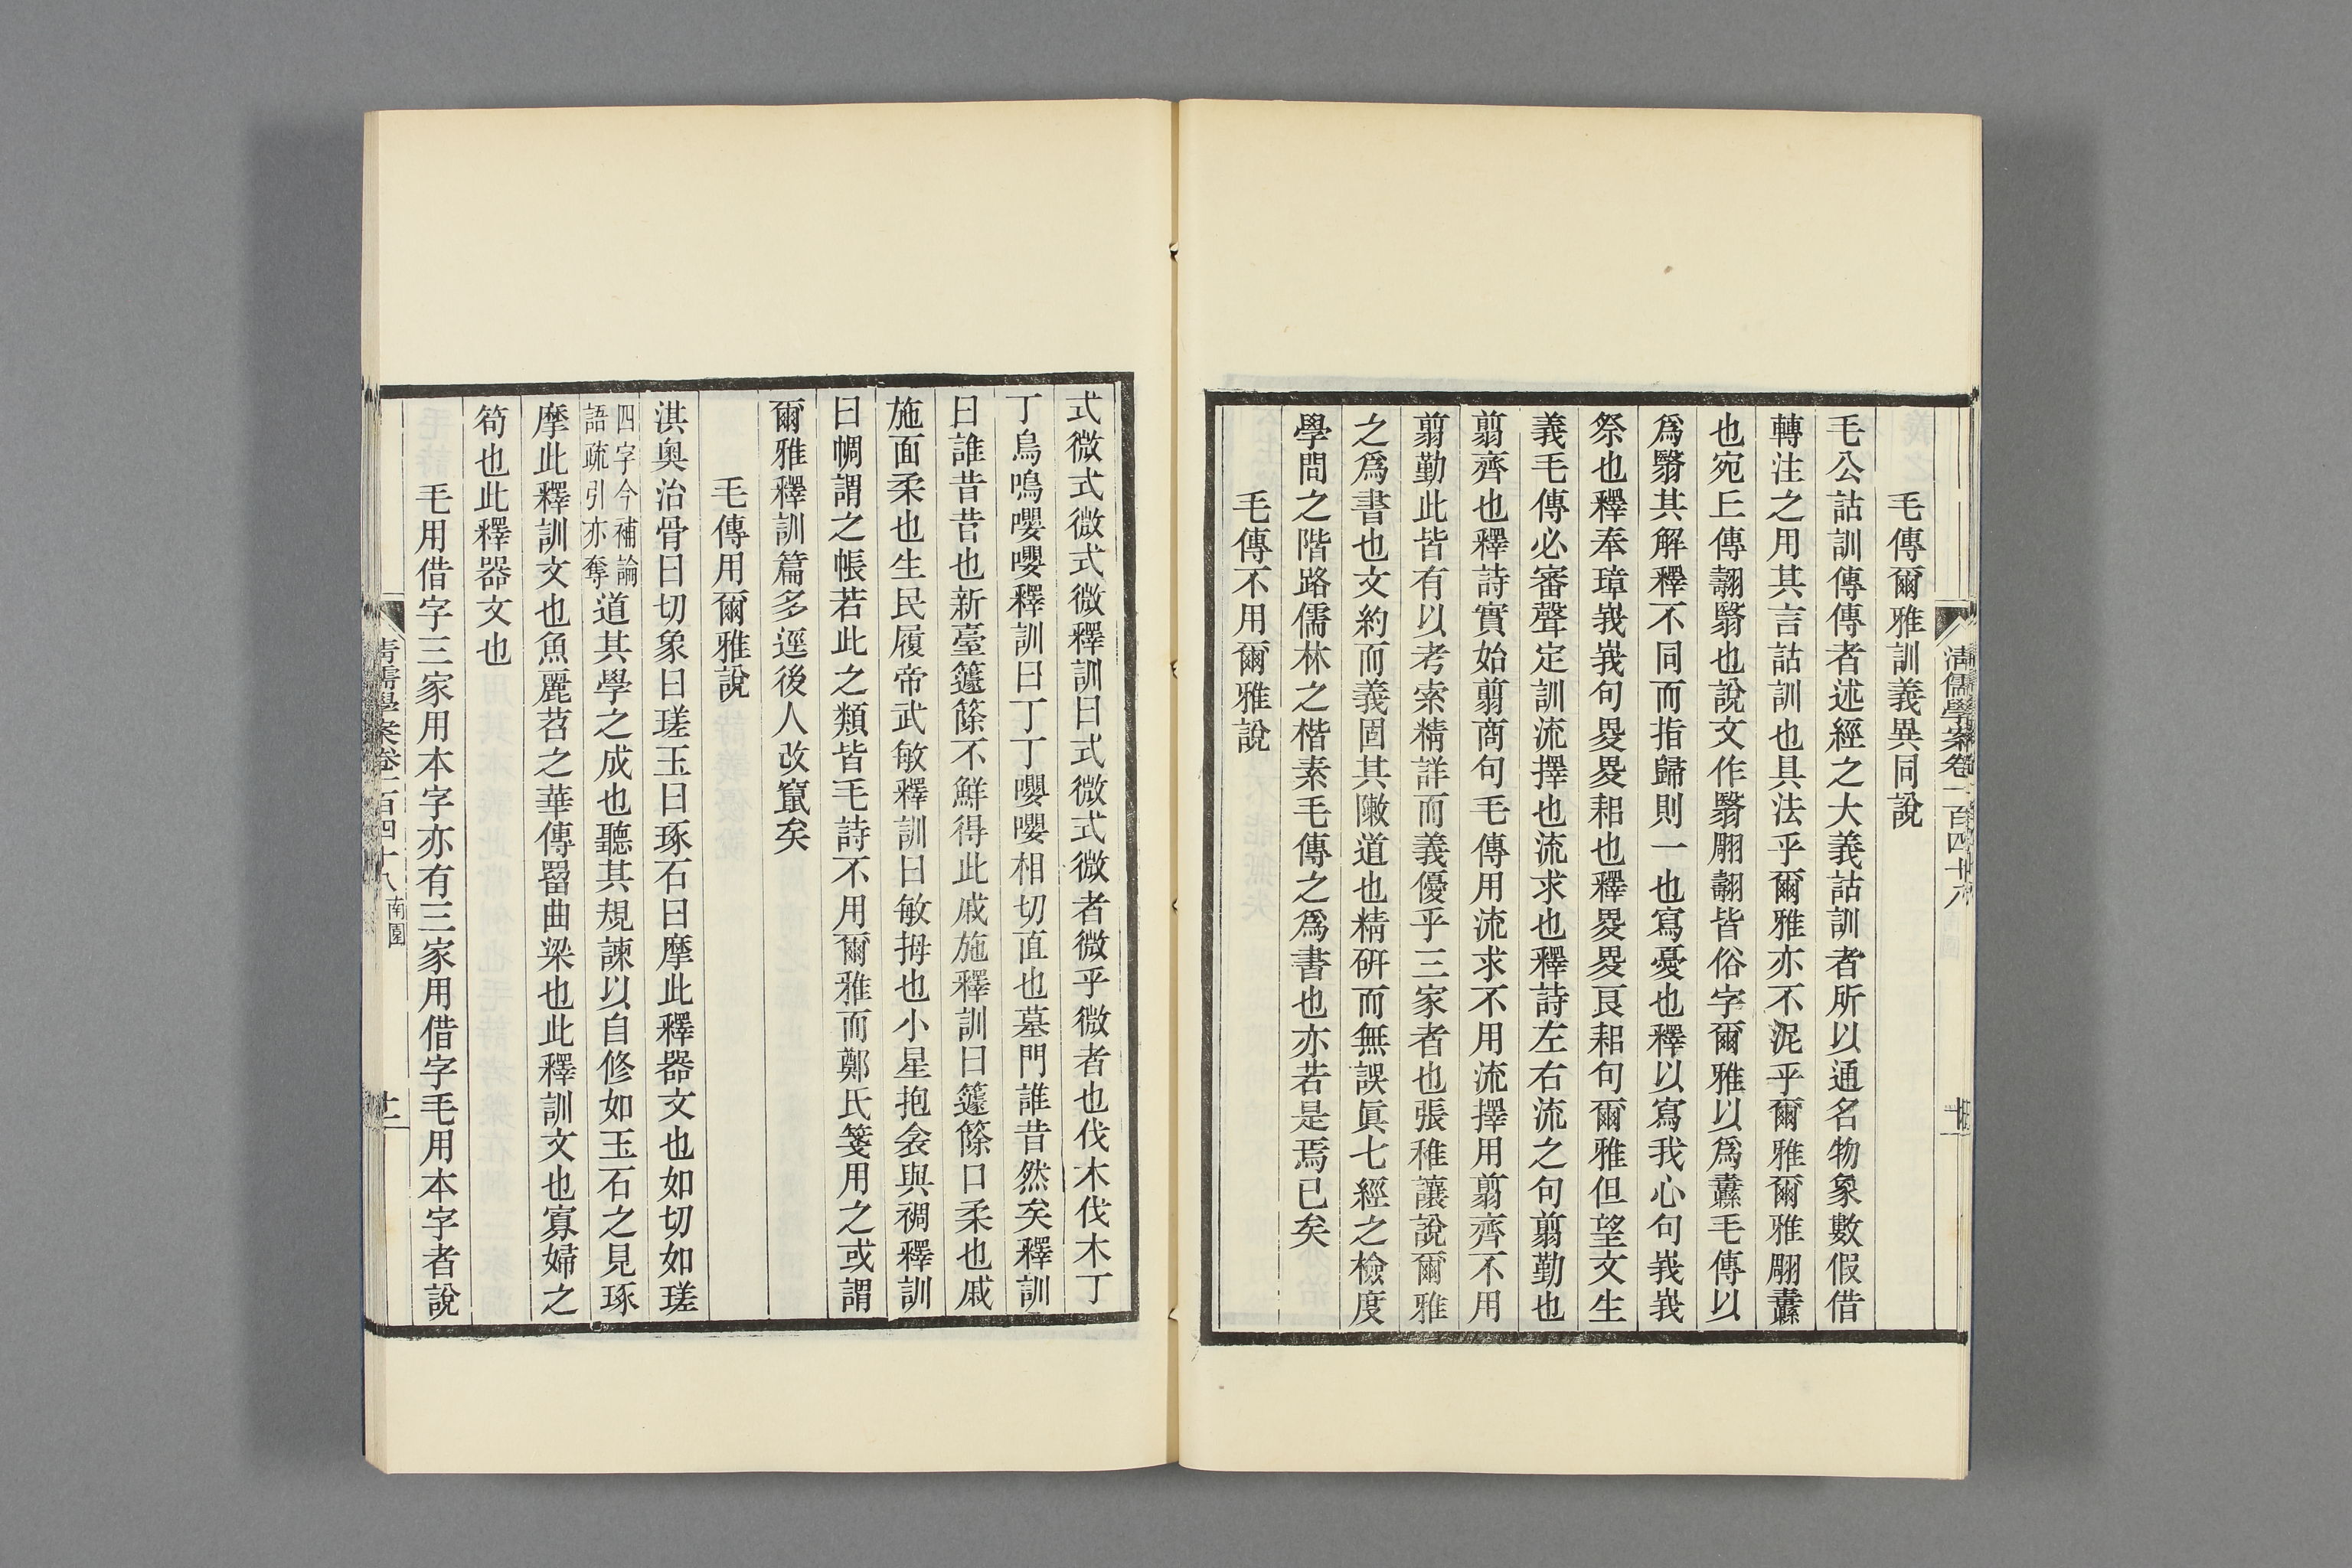 毛傳爾雅訓義異同說
毛公詁訓傳傳者述經之大義詁訓者所以通名物象數假借
轉注之用其言詁訓也具法乎爾雅亦不泥乎爾雅爾雅翢纛
也宛丘傳翿翳也說文作翳翢翿皆俗字爾雅以爲纛毛傳以
爲翳其解釋不同而指歸則一也寫憂也釋以寫我心句峩峩
祭也釋奉璋峩峩句畟畟耜也釋畟畟良耜句爾雅但望文生
義毛傳必審聲定訓流擇也流求也釋詩左右流之句翦勤也
翦齊也釋詩實始翦商句毛傳用流求不用流擇用翦齊不用
翦勤此皆有以考索精詳而義優乎三家者也張稚讓說爾雅
之爲書也文約而義固其陳道也精研而無誤眞七經之檢度
學問之階路儒林之楷素毛傳之爲書也亦若是焉已矣
毛傳不用爾雅說
清儒學案卷一百四十八
式微式微式微釋訓曰式微式微者微乎微者也伐木伐木丁
丁鳥鳴嚶嚶釋訓曰丁丁嚶嚶相切直也墓門誰昔然矣釋訓
曰誰昔昔也新臺籧篨不鮮得此戚施釋訓曰籧篨口柔也戚
施面柔也生民履帝武敏釋訓曰敏拇也小星抱衾與裯釋訓
曰幬謂之帳若此之類皆毛詩不用爾雅而鄭氏箋用之或謂
爾雅釋訓篇多逕後人改竄矣
毛傳用爾雅說
淇奧治骨曰切象曰瑳玉曰琢石曰摩此釋器文也如切如瑳
四字今補論語疏引亦奪道其學之成也聽其規諫以自修如玉石之見琢
摩此釋訓文也魚麗苕之華傳罶曲梁也此釋訓文也寡婦之
笱也此釋器文也
毛用借字三家用本字亦有三家用借字毛用本字者說
清儒學案卷一百四十八 南園 十二